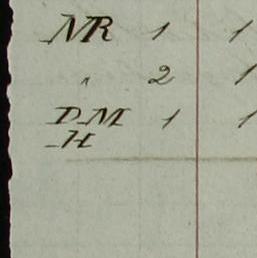 NR 1 1
" 2 1
D-M 1 1
-H